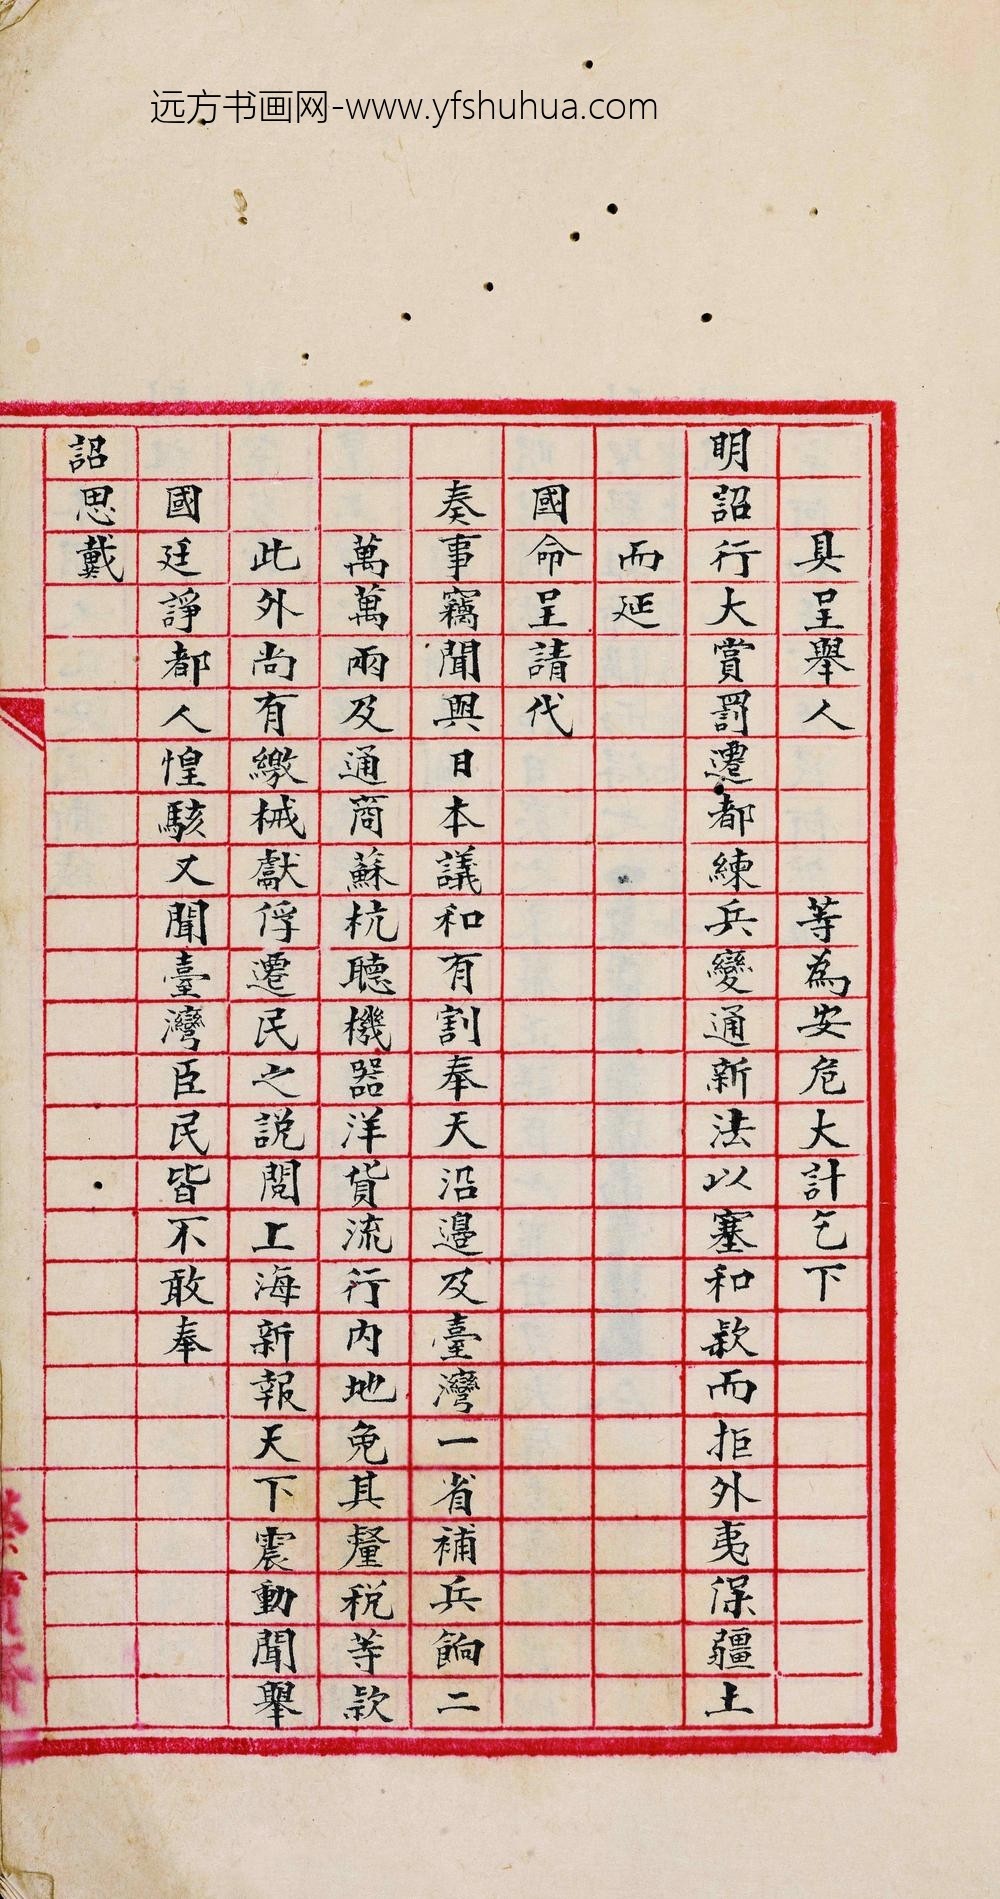 远方书画网-www.yfshuhua.com
具呈舉人等為安危大計乞下
明詔行大賞罰遷都練兵變通新法以塞和款而拒外夷保疆土
而延
國命呈請代
奏事竊聞與日本議和有割奉天沿邊及臺灣一省補兵餉二
萬萬兩及通商蘇杭聽機器洋貨流行內地免其釐稅等款
此外尚有繳械獻俘遷民之說閱上海新報天下震動聞舉
國廷諍都人惶駭又聞臺灣臣民皆不敢奉
詔思戴